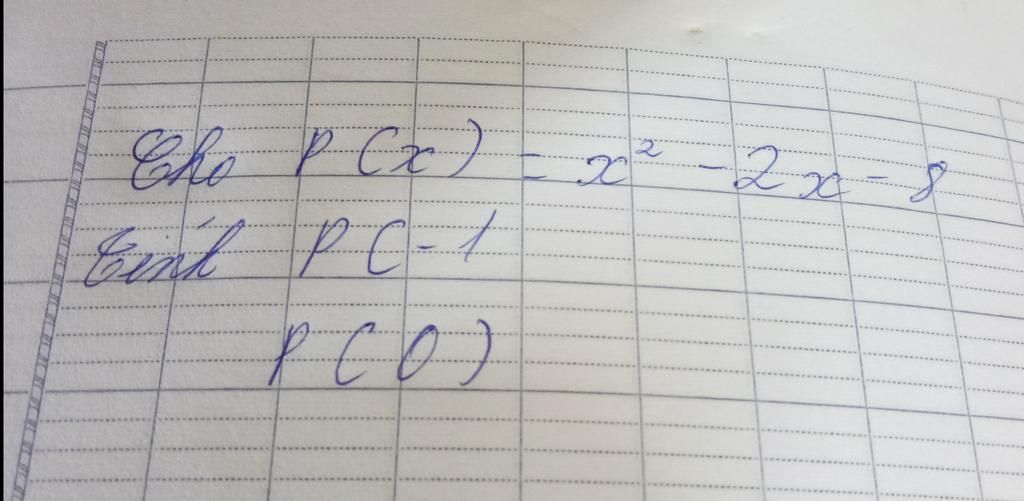 Cho P(x) = x² - 2x - 8
Tính P(-1
P(0)